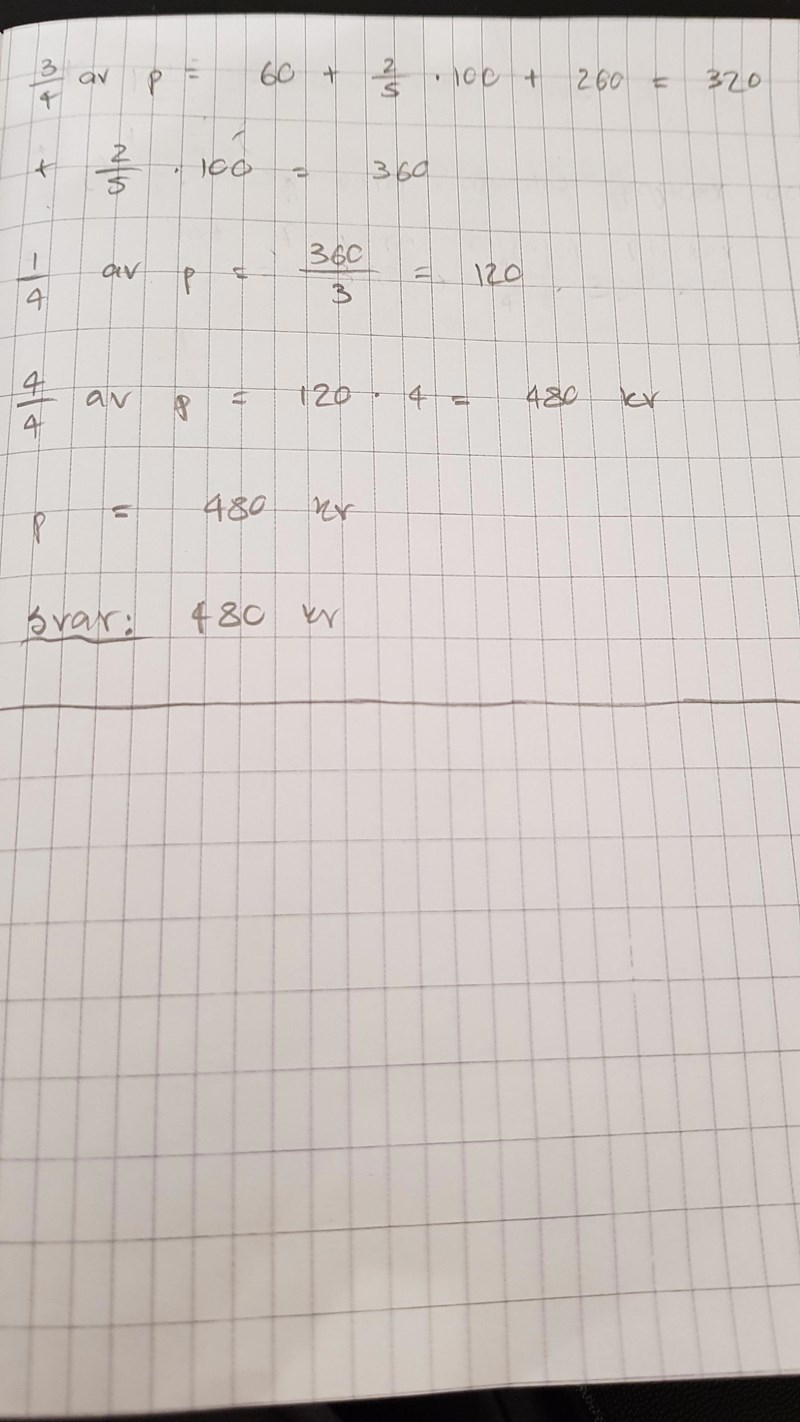 3/4 av p = 60 + 2/5 · 100 + 260 = 320
+ 2/5 · 100 = 360
1/4 av p = 360/3 = 120
4/4 av p = 120 · 4 = 480 kr
p = 480 kr
Svar: 480 kr